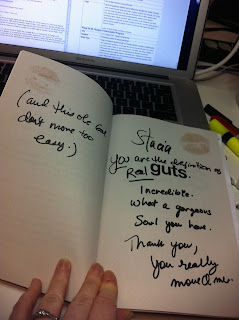 (and this ole Goat
don't move too
easy.)
Stacia
You are the definition of
Real guts.
Incredible.
What a gorgeous
Soul you have.
Thank you,
you really
moved me.